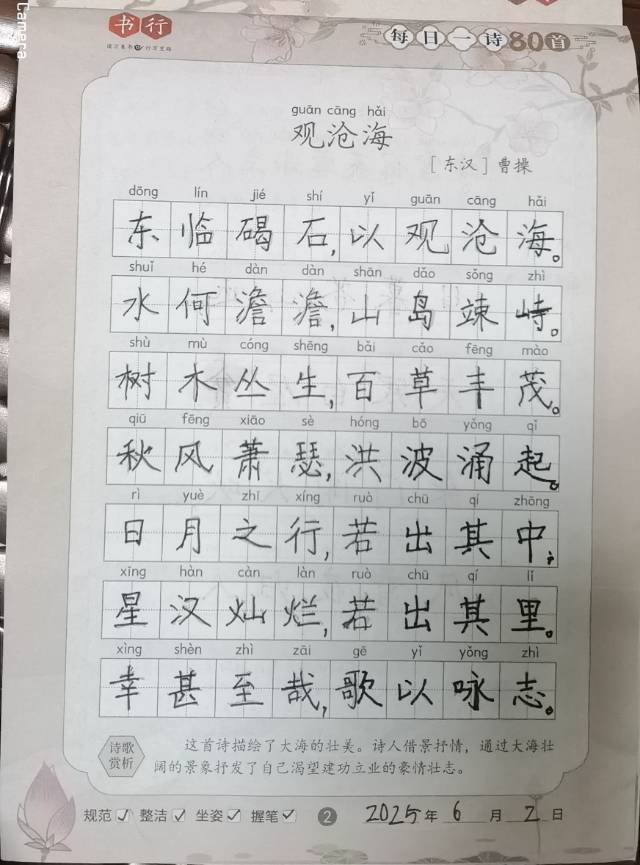 Camera
书行
每日一诗80首
guān cāng hǎi
观沧海
[东汉]曹操
dōng lín jié shí yǐ guān cāng hǎi
东临碣石,以观沧海。
shuǐ hé dàn dàn shān dǎo sǒng zhì
水何澹澹,山岛竦峙。
shù mù cóng shēng bǎi cǎo fēng mào
树木丛生,百草丰茂。
qiū fēng xiāo sè hóng bō yǒng qǐ
秋风萧瑟,洪波涌起。
rì yuè zhī xíng ruò chū qí zhōng
日月之行,若出其中;
xīng hàn càn làn ruò chū qí lǐ
星汉灿烂,若出其里。
xìng shèn zhì zāi gē yǐ yǒng zhì
幸甚至哉,歌以咏志。
诗歌
赏析
这首诗描绘了大海的壮美。诗人借景抒情,通过大海壮
阔的景象抒发了自己渴望建功立业的豪情壮志。
规范✓ 整洁✓ 坐姿✓ 握笔✓ 2 2025年6月2日